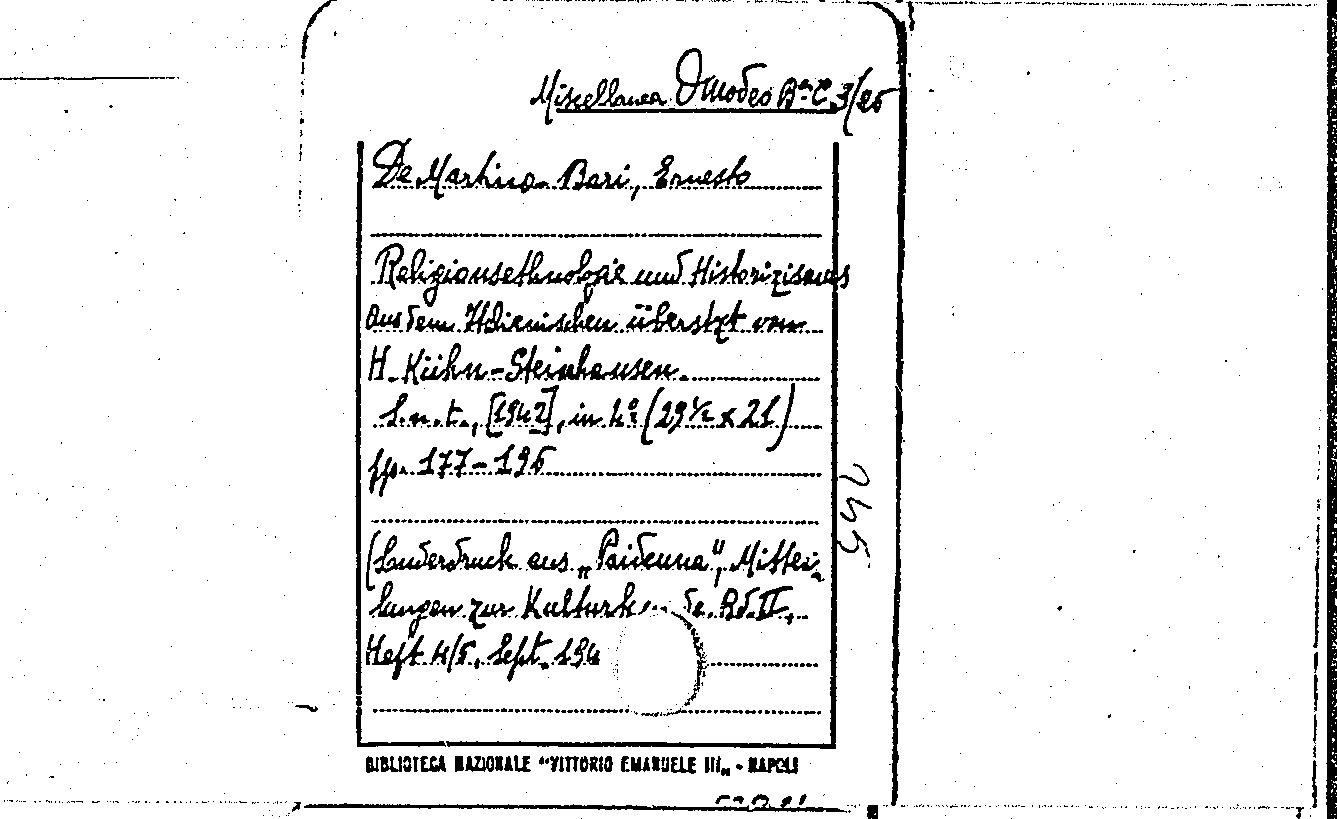 Miscellanea Omodeo Bª C. 3/25
De Martino-Bari, Ernesto
Religionsethnologie und Historizismus
aus dem Italienischen überstzt von
H. Kühn-Steinhausen.
S.n.t., [1942], in 4º (29½ x 21)
pp. 177-196
245
(Sonderdruck aus „Paideuma", Mittei-
lungen zur Kulturk de. Bd. II,
Heft 4/5, Sept. 194
BIBLIOTECA NAZIONALE "VITTORIO EMANUELE III„ - NAPOLI